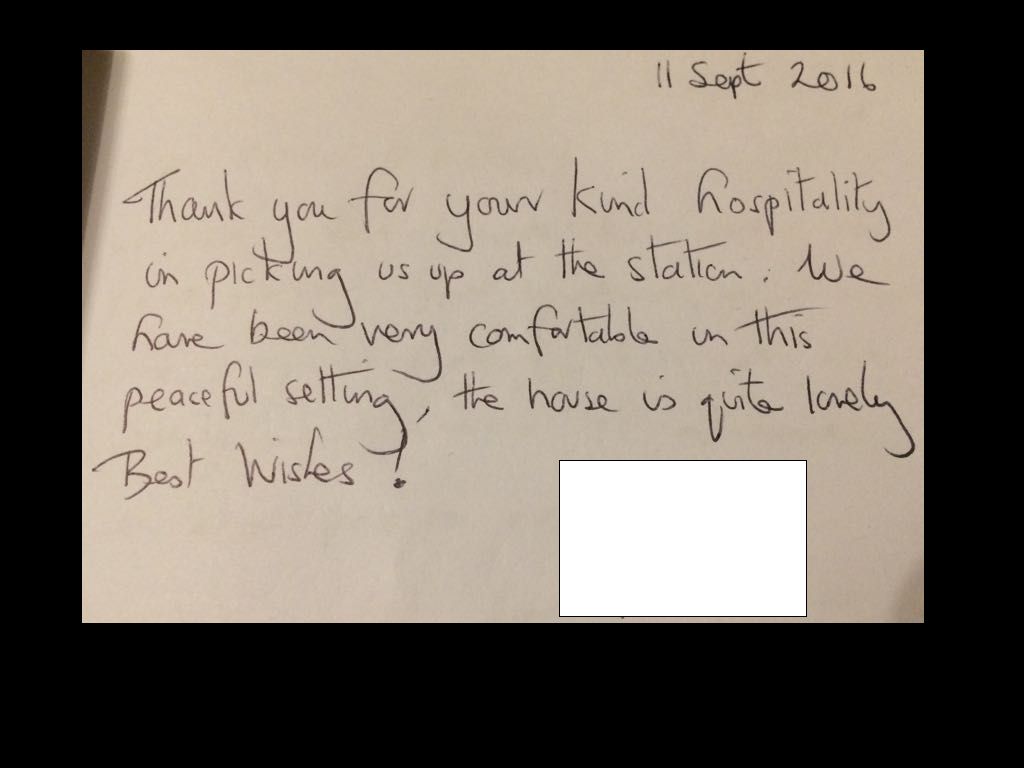 11 Sept 2016
Thank you for your kind hospitality
in picking us up at the station. We
have been very comfortable in this
peaceful setting, the house is quite lovely
Best Wishes !